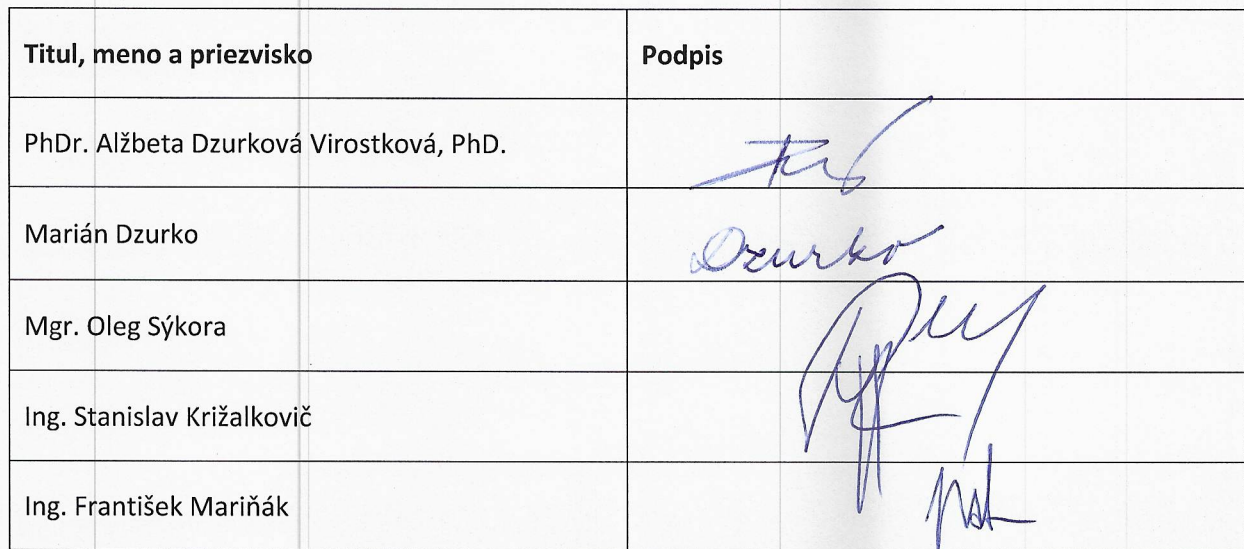 Titul, meno a priezvisko Podpis
PhDr. Alžbeta Dzurková Virostková, PhD.
Marián Dzurko Dzurko
Mgr. Oleg Sýkora
Ing. Stanislav Križalkovič
Ing. František Mariňák